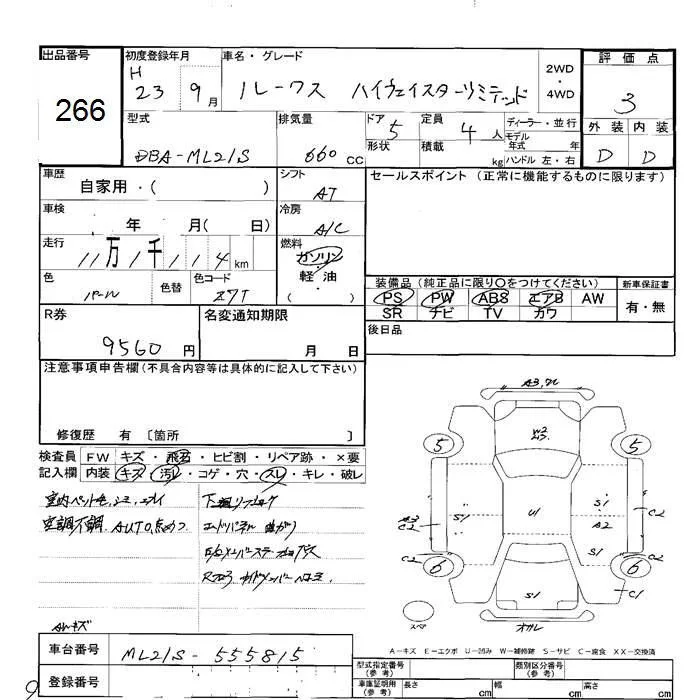 出品番号
266
初度登録年月
H 23 9月
車名・グレード
ルークス ハイウェイスターリミテッド
2WD
・
4WD
評価点
3
外装 内装
D D
型式
DBA-ML21S
排気量
660 CC
ドア 5
形状
定員 4人
積載 kg
ディーラー・並行
モデル年式 年式
ハンドル 左・右
車歴
自家用・( )
シフト
AT
セールスポイント (正常に機能するものに限ります)
車検
年 月( 日)
冷房
A/C
走行
11万1千114km
燃料
ガソリン
軽・油
( )
色
パール
色替
色コード
Z7T
装備品 (純正品に限り○をつけてください)
PS PW ABS エアB AW
SR ナビ TV カワ
新車保証書
有・無
R券
9560円
名変通知期限
月 日
後日品
注意事項申告欄 (不具合内容等は具体的に記入して下さい)
修復歴 有 〔箇所 〕
検査員記入欄
FW キズ・飛石・ヒビ割・リペア跡・×要
内装 キズ・汚レ・コゲ・穴・スレ・キレ・破レ
空調不調 AUTO点めつ
エンドパネル 曲がり
AWキズ
A3,U2
W2
5 5
A3
C2
S1 U1 S1
A2
C2
C2 S1 C2
6 6
S1 C1
スペア
オカレ
A-キズ E-エクボ U-凹み W-補修跡 S-サビ C-腐食 XX-交換済
車台番号
ML21S-555815
登録番号
型式指定番号
(参考)
類別区分番号
(参考)
車庫証明用
(参考)
長さ cm
幅 cm
高さ cm